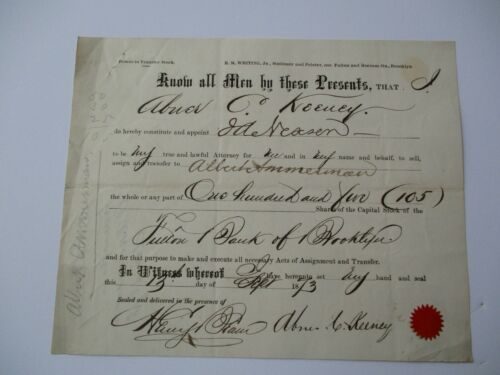 Power to Transfer Stock.
R. M. WHITING, Jr., Stationer and Printer, cor. Fulton and Nassau Sts., Brooklyn
Know all Men by these Presents, THAT I
Abner C. Keeney
do hereby constitute and appoint
to be my true and lawful Attorney for me and in my name and behalf, to sell,
assign and transfer to Albert Ammerman
the whole or any part of One hundred and five (105)
Shares of the Capital Stock of the
Fulton Bank of Brooklyn
and for that purpose to make and execute all necessary Acts of Assignment and Transfer.
In Witness whereof I have hereunto set my hand and seal
this day of Sept 1873
Sealed and delivered in the presence of
Abner C. Keeney
Albert Ammerman